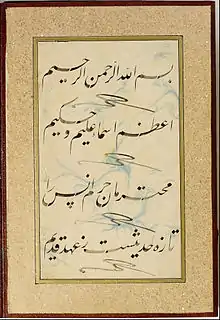 بسم الله الرحمن الرحیم
اعظم اسماء علیم و حکیم
محترمان حرم انس را
تازه حدیثیست ز عهد قدیم